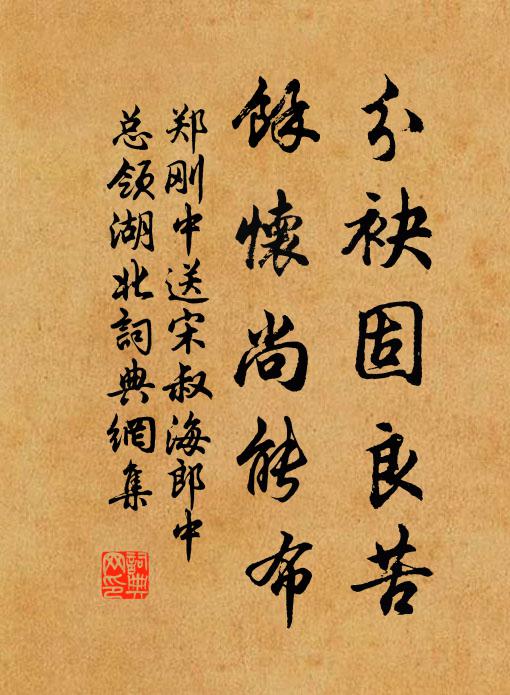 分袂固良苦
餘懷尚能布
郑刚中送宋叔海郎中
总领湖北詞典網集
詞典网印